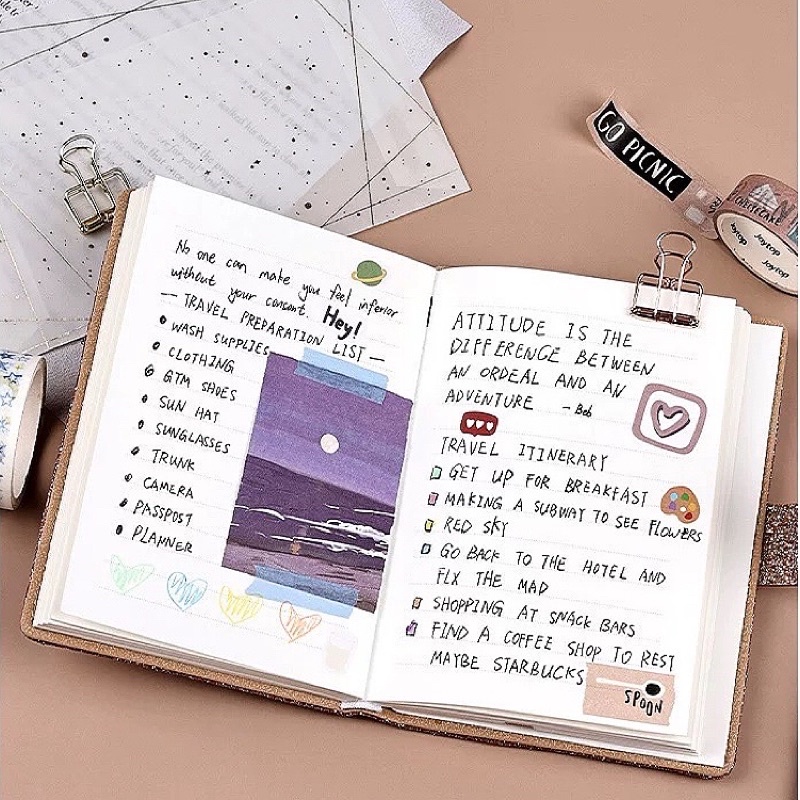 No one can make you feel inferior
without your concent. Hey!
— TRAVEL PREPARATION LIST —
WASH SUPPLIES
CLOTHING
GTM SHOES
SUN HAT
SUNGLASSES
TRUNK
CAMERA
PASSPOST
PLANNER
ATTITUDE IS THE
DIFFERENCE BETWEEN
AN ORDEAL AND AN
ADVENTURE -Bob
TRAVEL ITINERARY
GET UP FOR BREAKFAST
MAKING A SUBWAY TO SEE FLOWERS
RED SKY
GO BACK TO THE HOTEL AND
FLX THE MAD
SHOPPING AT SNACK BARS
FIND A COFFEE SHOP TO REST
MAYBE STARBUCKS
SPOON
GO PICNIC
CHEESECAKE
Joytop
Joytop